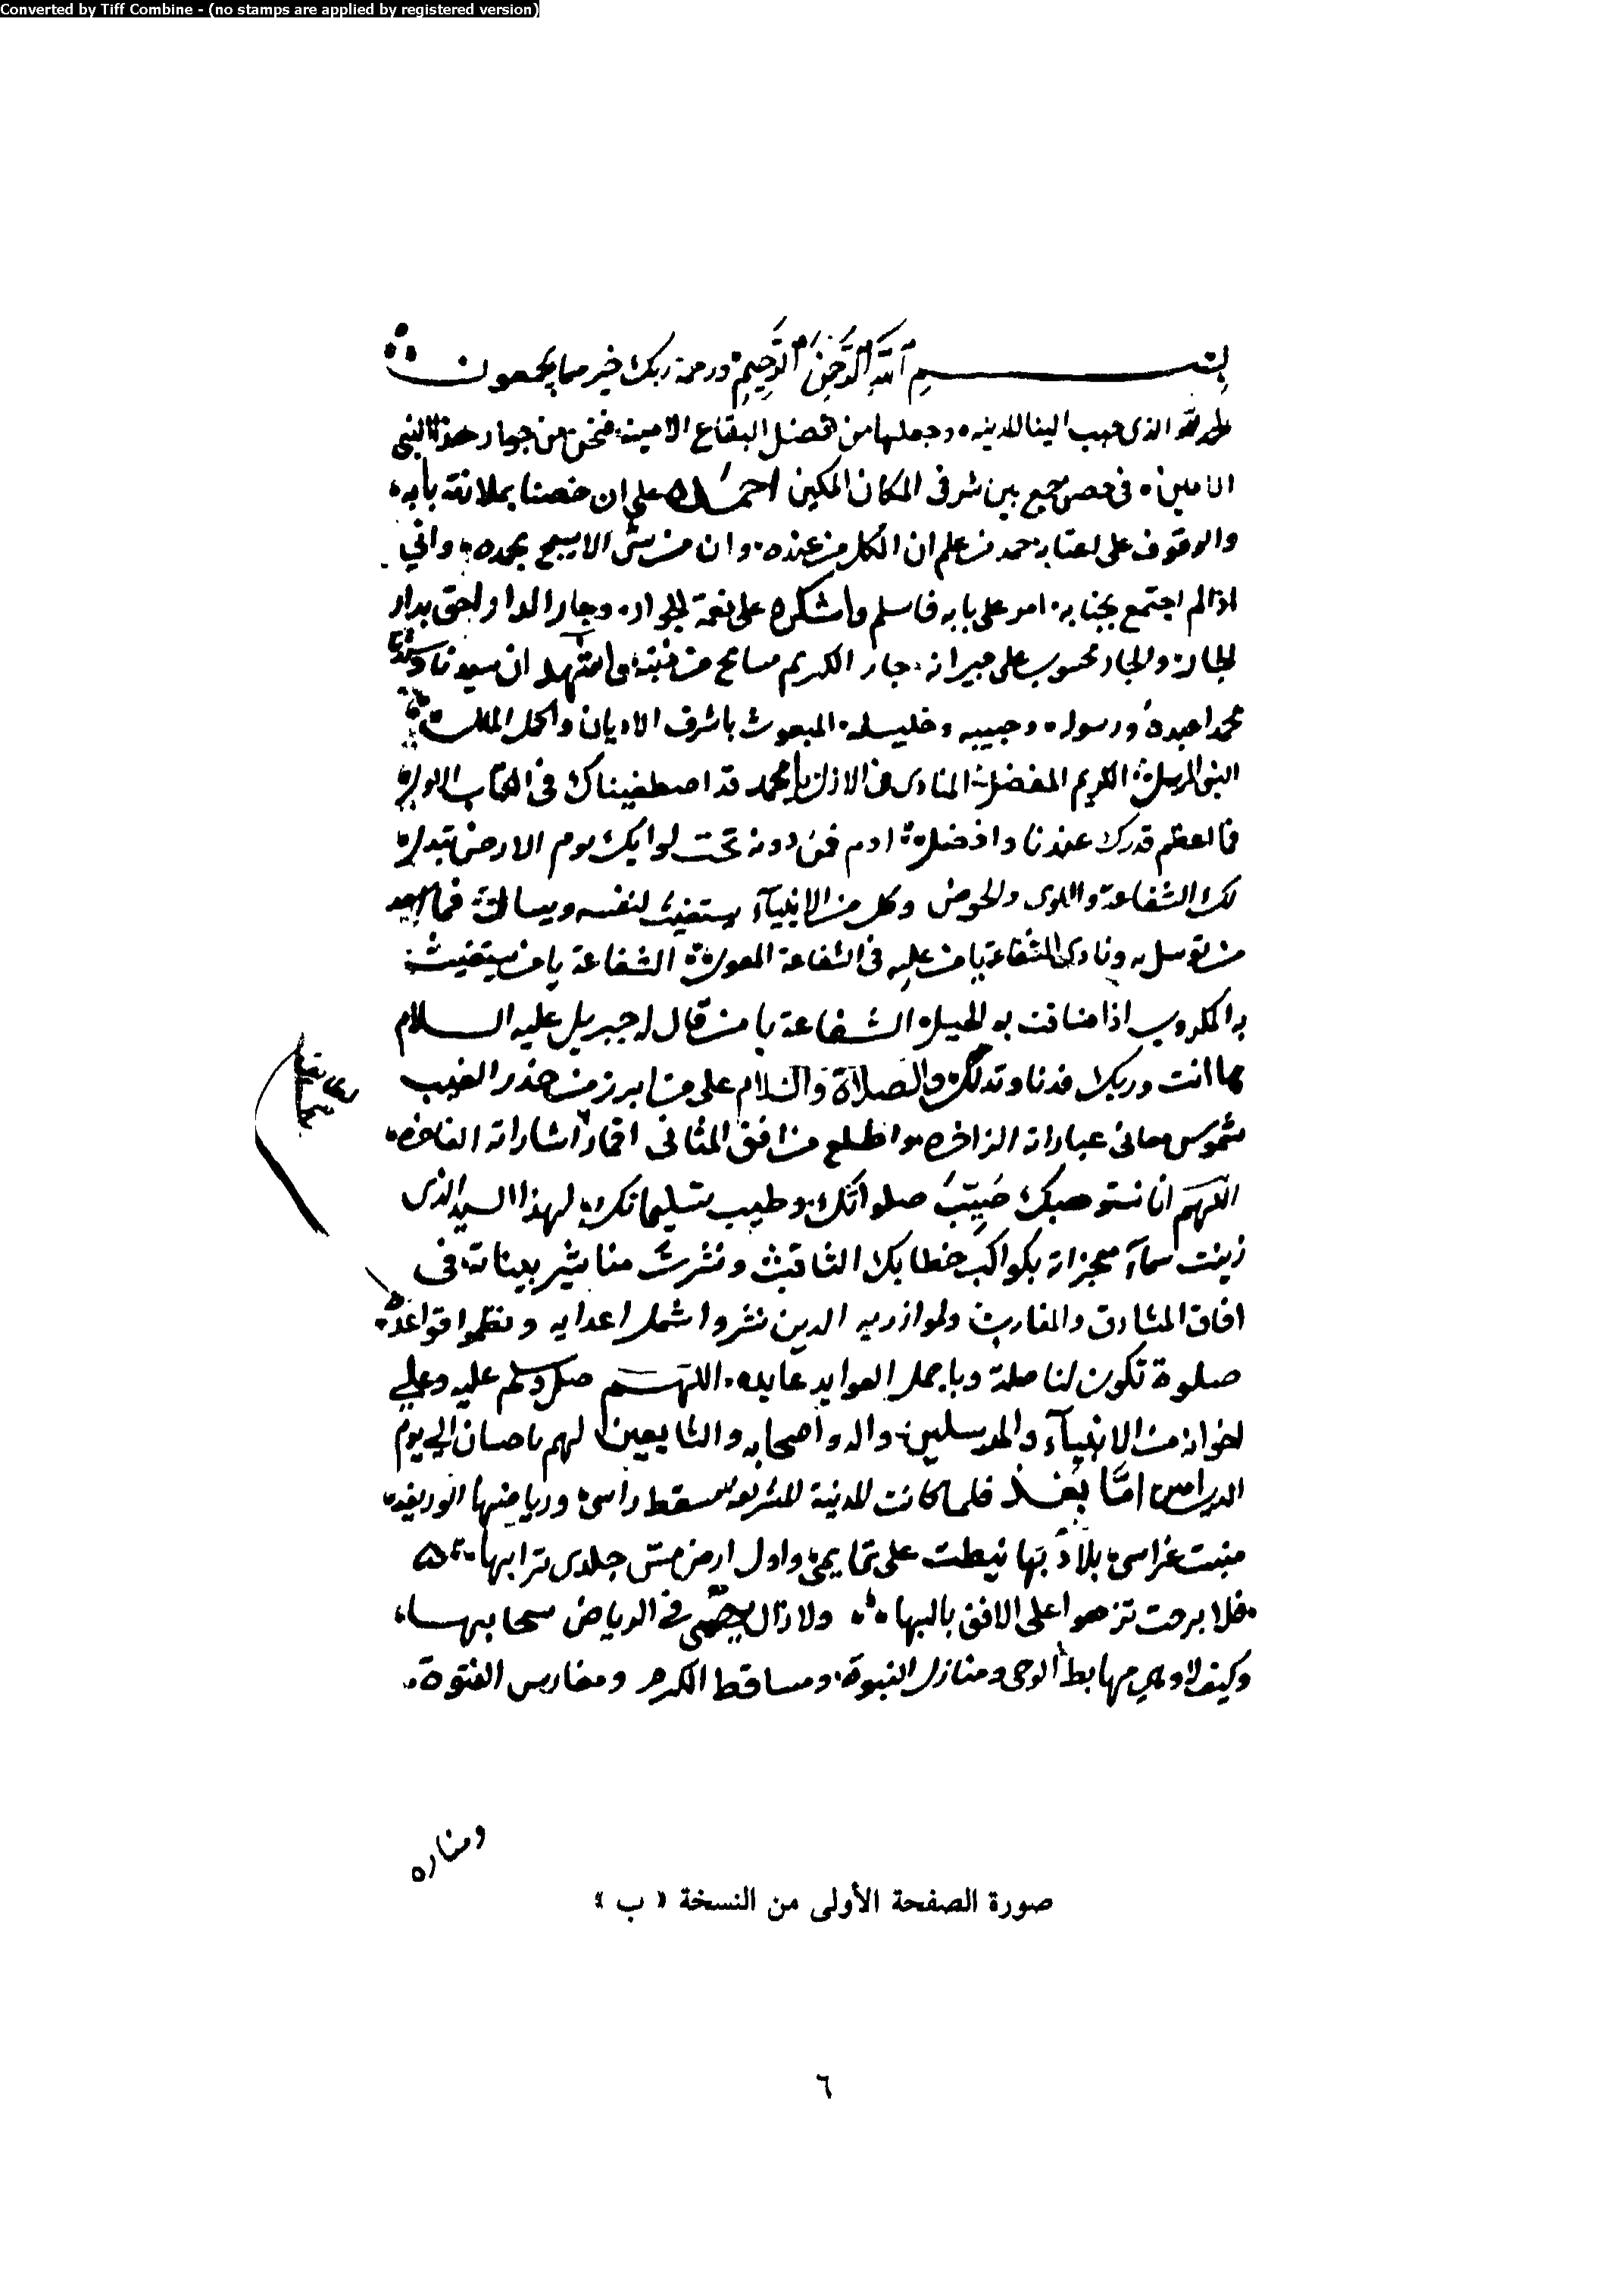 Converted by Tiff Combine - (no stamps are applied by registered version)
بسم الله الرحمن الرحيم ورحمة ربك خير مما يجمعون
الحمد لله الذى حبب الينا المدينه وجعلها من افضل البقاع الامينه فنحن من جوار هذا النبى
الامين فى حصن جمع بين شرفى المكان المكين احمده على ان خصنا بملازمة بابه
والوقوف على اعتابه حمد من علم ان الكل من عنده وان من شئ الا يسبح بحمده وانى
اذا لم اجتمع بجنابه امر على بابه فاسلم واشكره على نعمة الجوار وجار الدار احق بدار
الجار والجار محسوب على جيرانه جار الكريم مسامح من ذنبه واشهد ان سيدنا وسندنا
محمدا عبده ورسوله وحبيبه وخليله المبعوث باشرف الاديان واكمل الملل
النبى المرسل الكريم المفضل المنادى فى الازل يا محمد قد اصطفيناك فى الكتاب الاول
فما اعظم قدرك عندنا وافضله ادم فمن دونه تحت لوايك يوم الارض تبدل
لك الشفاعة واللوى والحوض وكل من الانبيآء يستغيث لنفسه ويسال
من توسل به ونادى الشفاعة يا من عليه فى الشفاعة المعول الشفاعة يا من يستغيث
به المكروب اذا ضاقت به الحيل الشفاعة يا من قال له جبريل عليه السلام
ها انت وربك فدنا وتدلى والصلاة والسلام على من ابرز من خدر الغيب
شموس معانى عباراته الزاخره واطلع من افق المثانى اقمار اشاراته الفاخره
اللهم انا نستوهبك صيب صلواتك وطيب تسليماتك لهذا السيد الذى
زينت سمآء معجزاته بكواكب خطابك الثاقب ونشرت مناشير بيناته فى
افاق المشارق والمغارب ولموازريه الدين نثروا شمل اعدايه ونظموا قواعد
صلوة تكون لنا صلة وباجمل العوايد عايده اللهم صل وسلم عليه وعلى
اخوانه من الانبيآء والمرسلين واله واصحابه والتابعين لهم باحسان الى يوم
الدين امين اما بعد فلما كانت المدينة الشريفه مسقط راسى ورياضها الوريفه
منبت غراسى بلاد بها نيطت على تمايمى واول ارض مس جلدى ترابها
فلا برحت تزهوا على الافق بالبها ولا زال يهمى فى الرياض سحابها
وكيف لا وهى مهابط الوحى ومنازل النبوة ومساقط الكرم ومغارس الفتوة
ومناره
صورة الصفحة الأولى من النسخة « ب »
٦